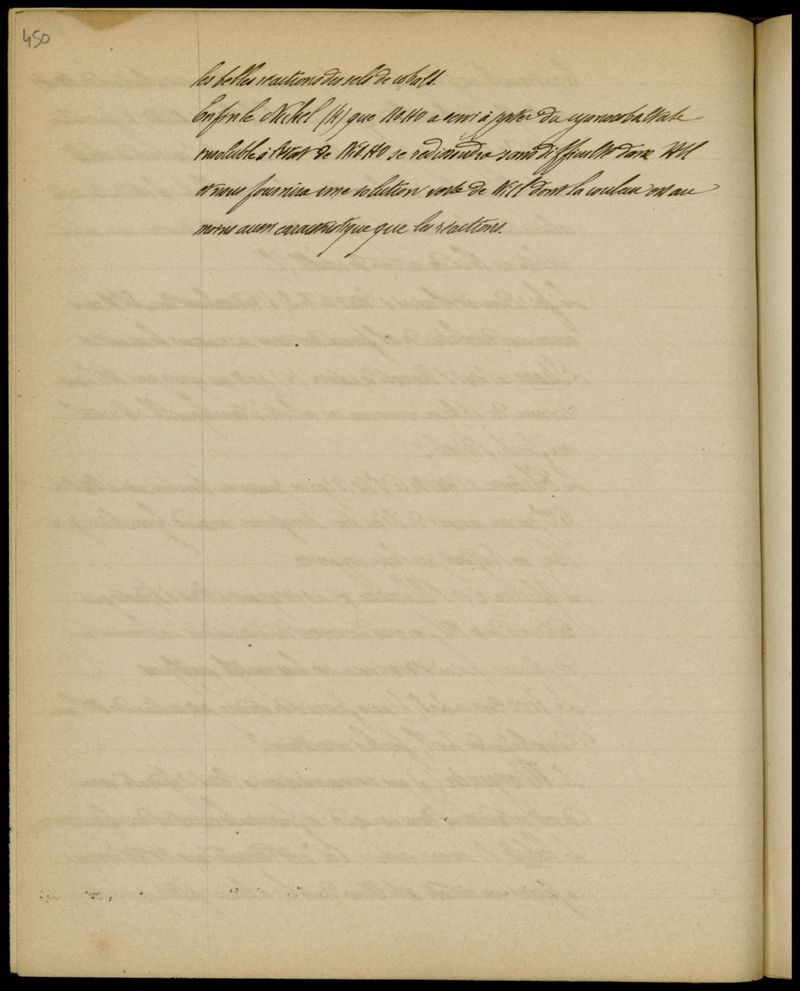 450
les belles réactions des sels de cobalt.
Enfin le Nickel (H) que a servi à du cyanocobaltate
insoluble à l'état de se redissoudra sans difficulté dans HCl
et nous fournira une solution verte de dont la couleur est au
moins aussi caractéristique que les réactions.